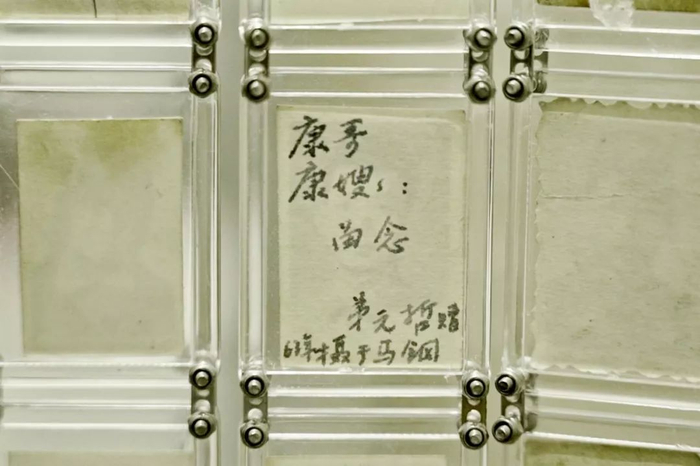 康哥
康嫂:
畄念
弟元哲赠
63年摄于马钢